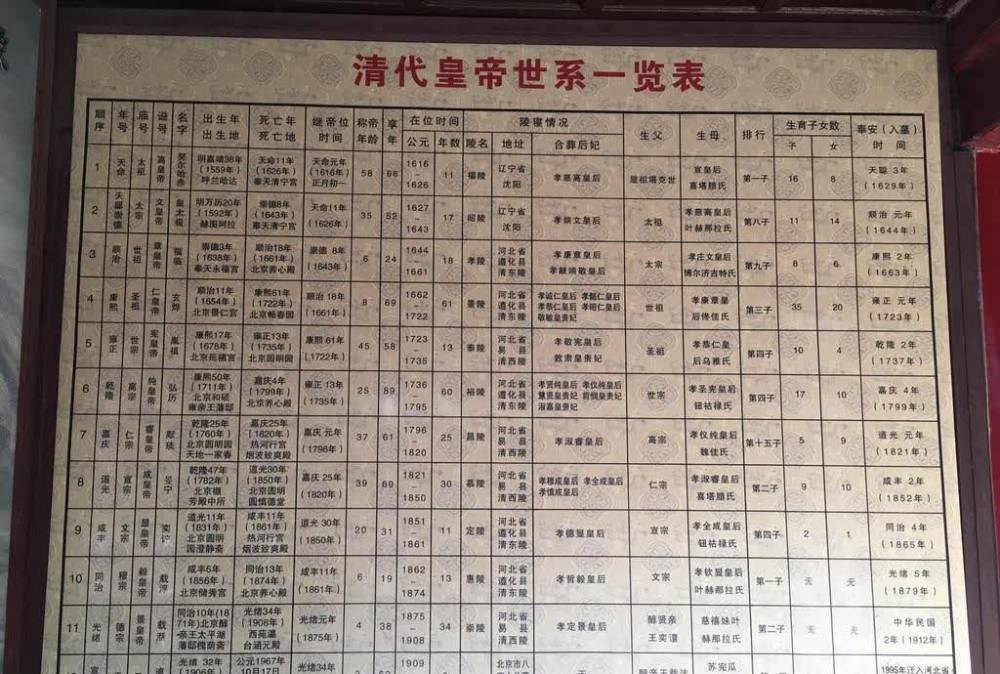 清代皇帝世系一览表
顺序 年号 庙号 谥号 名字 出生年 出生地 死亡年 死亡地 继帝位时间 称帝年龄 享年 在位时间 公元 年数 陵寝情况 陵名 地址 合葬后妃 生父 生母 排行 生育子女数 子 女 奉安(入墓)时间
1 天命 太祖 高皇帝 努尔哈赤 明嘉靖38年(1559年)呼兰哈达 天命11年(1626年)奉天清宁宫 天命元年(1616年)正月初一 58 68 1616–1626 11 福陵 辽宁省沈阳 孝慈高皇后 显祖塔克世 宣皇后喜塔腊氏 第一子 16 8 天聪 3年(1629年)
2 天聪崇德 太宗 文皇帝 皇太极 明万历20年(1592年)赫图阿拉 崇德8年(1643年)奉天清宁宫 天命11年(1626年) 35 52 1627–1643 17 昭陵 辽宁省沈阳 孝端文皇后 太祖 孝慈高皇后叶赫那拉氏 第八子 11 14 顺治 元年(1644年)
3 顺治 世祖 章皇帝 福临 崇德3年(1638年)奉天永福宫 顺治18年(1661年)北京养心殿 崇德 8年(1643年) 6 24 1644–1661 18 孝陵 河北省遵化县清东陵 孝康章皇后 孝献端敬皇后 太宗 孝庄文皇后博尔济吉特氏 第九子 8 6 康熙 2年(1663年)
4 康熙 圣祖 仁皇帝 玄烨 顺治11年(1654年)北京景仁宫 康熙61年(1722年)北京畅春园 顺治 18年(1661年) 8 69 1662–1722 61 景陵 河北省遵化县清东陵 孝诚仁皇后 孝懿仁皇后 孝恭仁皇后 孝昭仁皇后 敬敏皇贵妃 世祖 孝康章皇后佟佳氏 第三子 35 20 雍正 元年(1723年)
5 雍正 世宗 宪皇帝 胤禛 康熙17年(1678年) 康熙 61年(1722年) 雍正13年(1735年)北京圆明园 45 58 1723–1735 13 泰陵 河北省易县清西陵 孝敬宪皇后 敦肃皇贵妃 圣祖 孝恭仁皇后乌雅氏 第四子 10 4 乾隆 2年(1737年)
6 乾隆 高宗 纯皇帝 弘历 康熙50年(1711年)北京和硕雍亲王藩邸 嘉庆4年(1799年)北京养心殿 雍正 13年(1735年) 25 89 1736–1795 60 裕陵 河北省遵化县清东陵 孝贤纯皇后 孝仪纯皇后 慧贤皇贵妃 哲悯皇贵妃 淑嘉皇贵妃 世宗 孝圣宪皇后钮祜禄氏 第四子 17 10 嘉庆 4年(1799年)
7 嘉庆 仁宗 睿皇帝 颙琰 乾隆25年(1760年)北京圆明园天地一家春 嘉庆25年(1820年)热河行宫烟波致爽殿 嘉庆 元年(1796年) 37 61 1796–1820 25 昌陵 河北省易县清西陵 孝淑睿皇后 高宗 孝仪纯皇后魏佳氏 第十五子 5 9 道光 元年(1821年)
8 道光 宣宗 成皇帝 旻宁 乾隆47年(1782年)北京撷芳殿中所 道光30年(1850年)北京圆明园慎德堂 嘉庆 25年(1820年) 39 69 1821–1850 30 慕陵 河北省易县清西陵 孝穆成皇后 孝全成皇后 孝慎成皇后 仁宗 孝淑睿皇后喜塔腊氏 第二子 9 10 咸丰 2年(1852年)
9 咸丰 文宗 显皇帝 奕詝 道光11年(1831年)北京圆明园澄静斋 咸丰11年(1861年)热河行宫烟波致爽殿 道光 30年(1850年) 20 31 1851–1861 11 定陵 河北省遵化县清东陵 孝德显皇后 宣宗 孝全成皇后钮祜禄氏 第四子 2 1 同治 4年(1865年)
10 同治 穆宗 毅皇帝 载淳 咸丰6年(1856年)北京储秀宫 同治13年(1874年)北京养心殿 咸丰11年(1861年) 6 19 1862–1874 13 惠陵 河北省遵化县清东陵 孝哲毅皇后 文宗 孝钦显皇后叶赫那拉氏 第一子 无 无 光绪 5年(1879年)
11 光绪 德宗 景皇帝 载湉 同治10年(1871年)北京醇亲王太平湖藩邸槐荫斋 光绪34年(1908年)西苑瀛台涵元殿 光绪元年(1875年) 4 38 1875–1908 34 崇陵 河北省易县清西陵 孝定景皇后 醇贤亲王奕譞 慈禧妹叶赫那拉氏 第二子 无 无 中华民国2年(1912年)
光绪 32年 公元1967年10月17日 光绪34年 1909 北京市八 苏完瓜 1995年迁入河北省